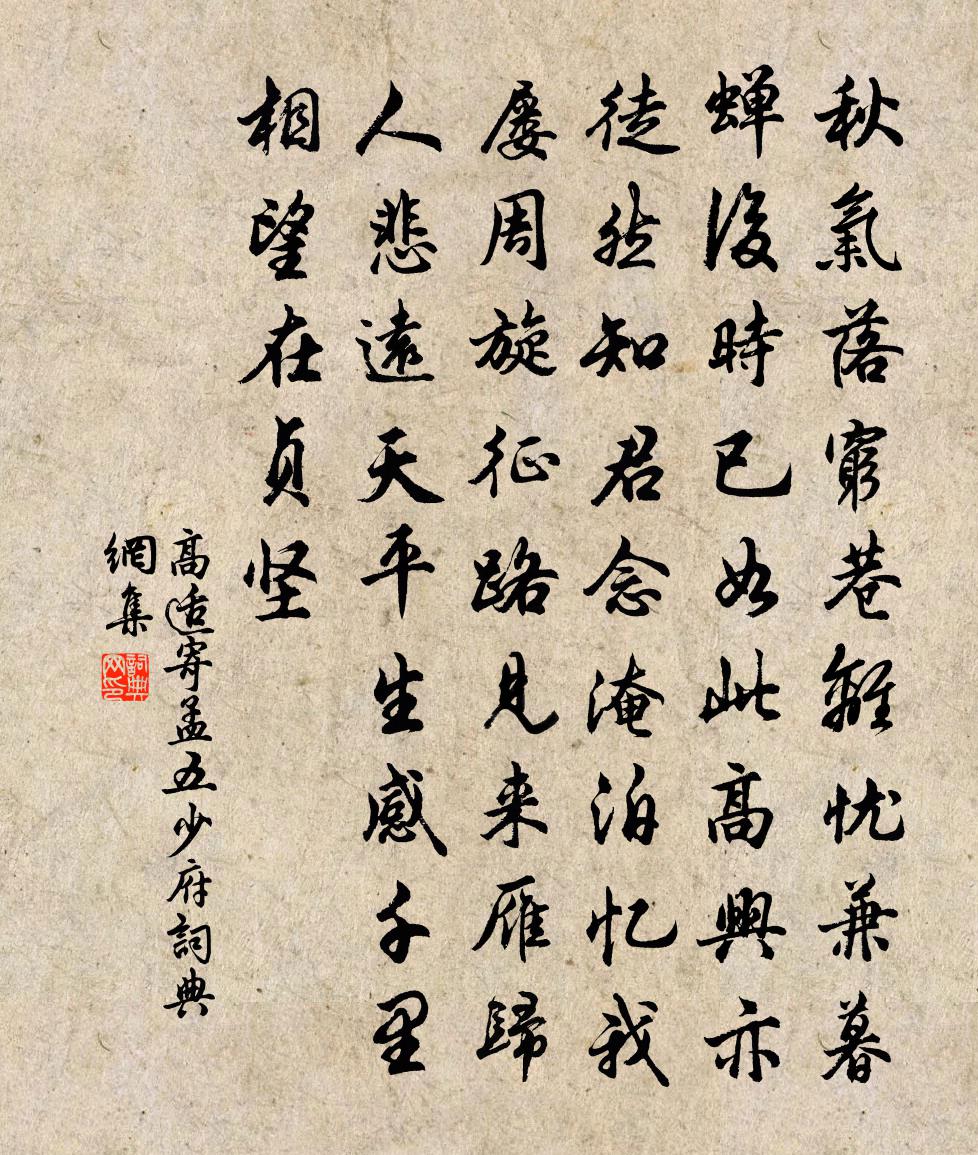 秋氣落窮巷離忧兼暮
蝉後時已如此高興亦
徒然知君念淹泊忆我
屡周旋征路見来雁歸
人悲遠天平生感千里
相望在贞坚
高适寄孟五少府詞典
網集
詞典网印